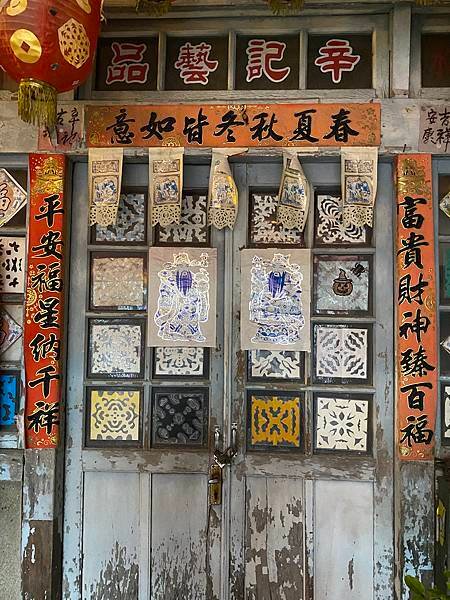 辛記藝品
春夏秋冬皆如意
富貴財神臻百福
平安福星納千祥